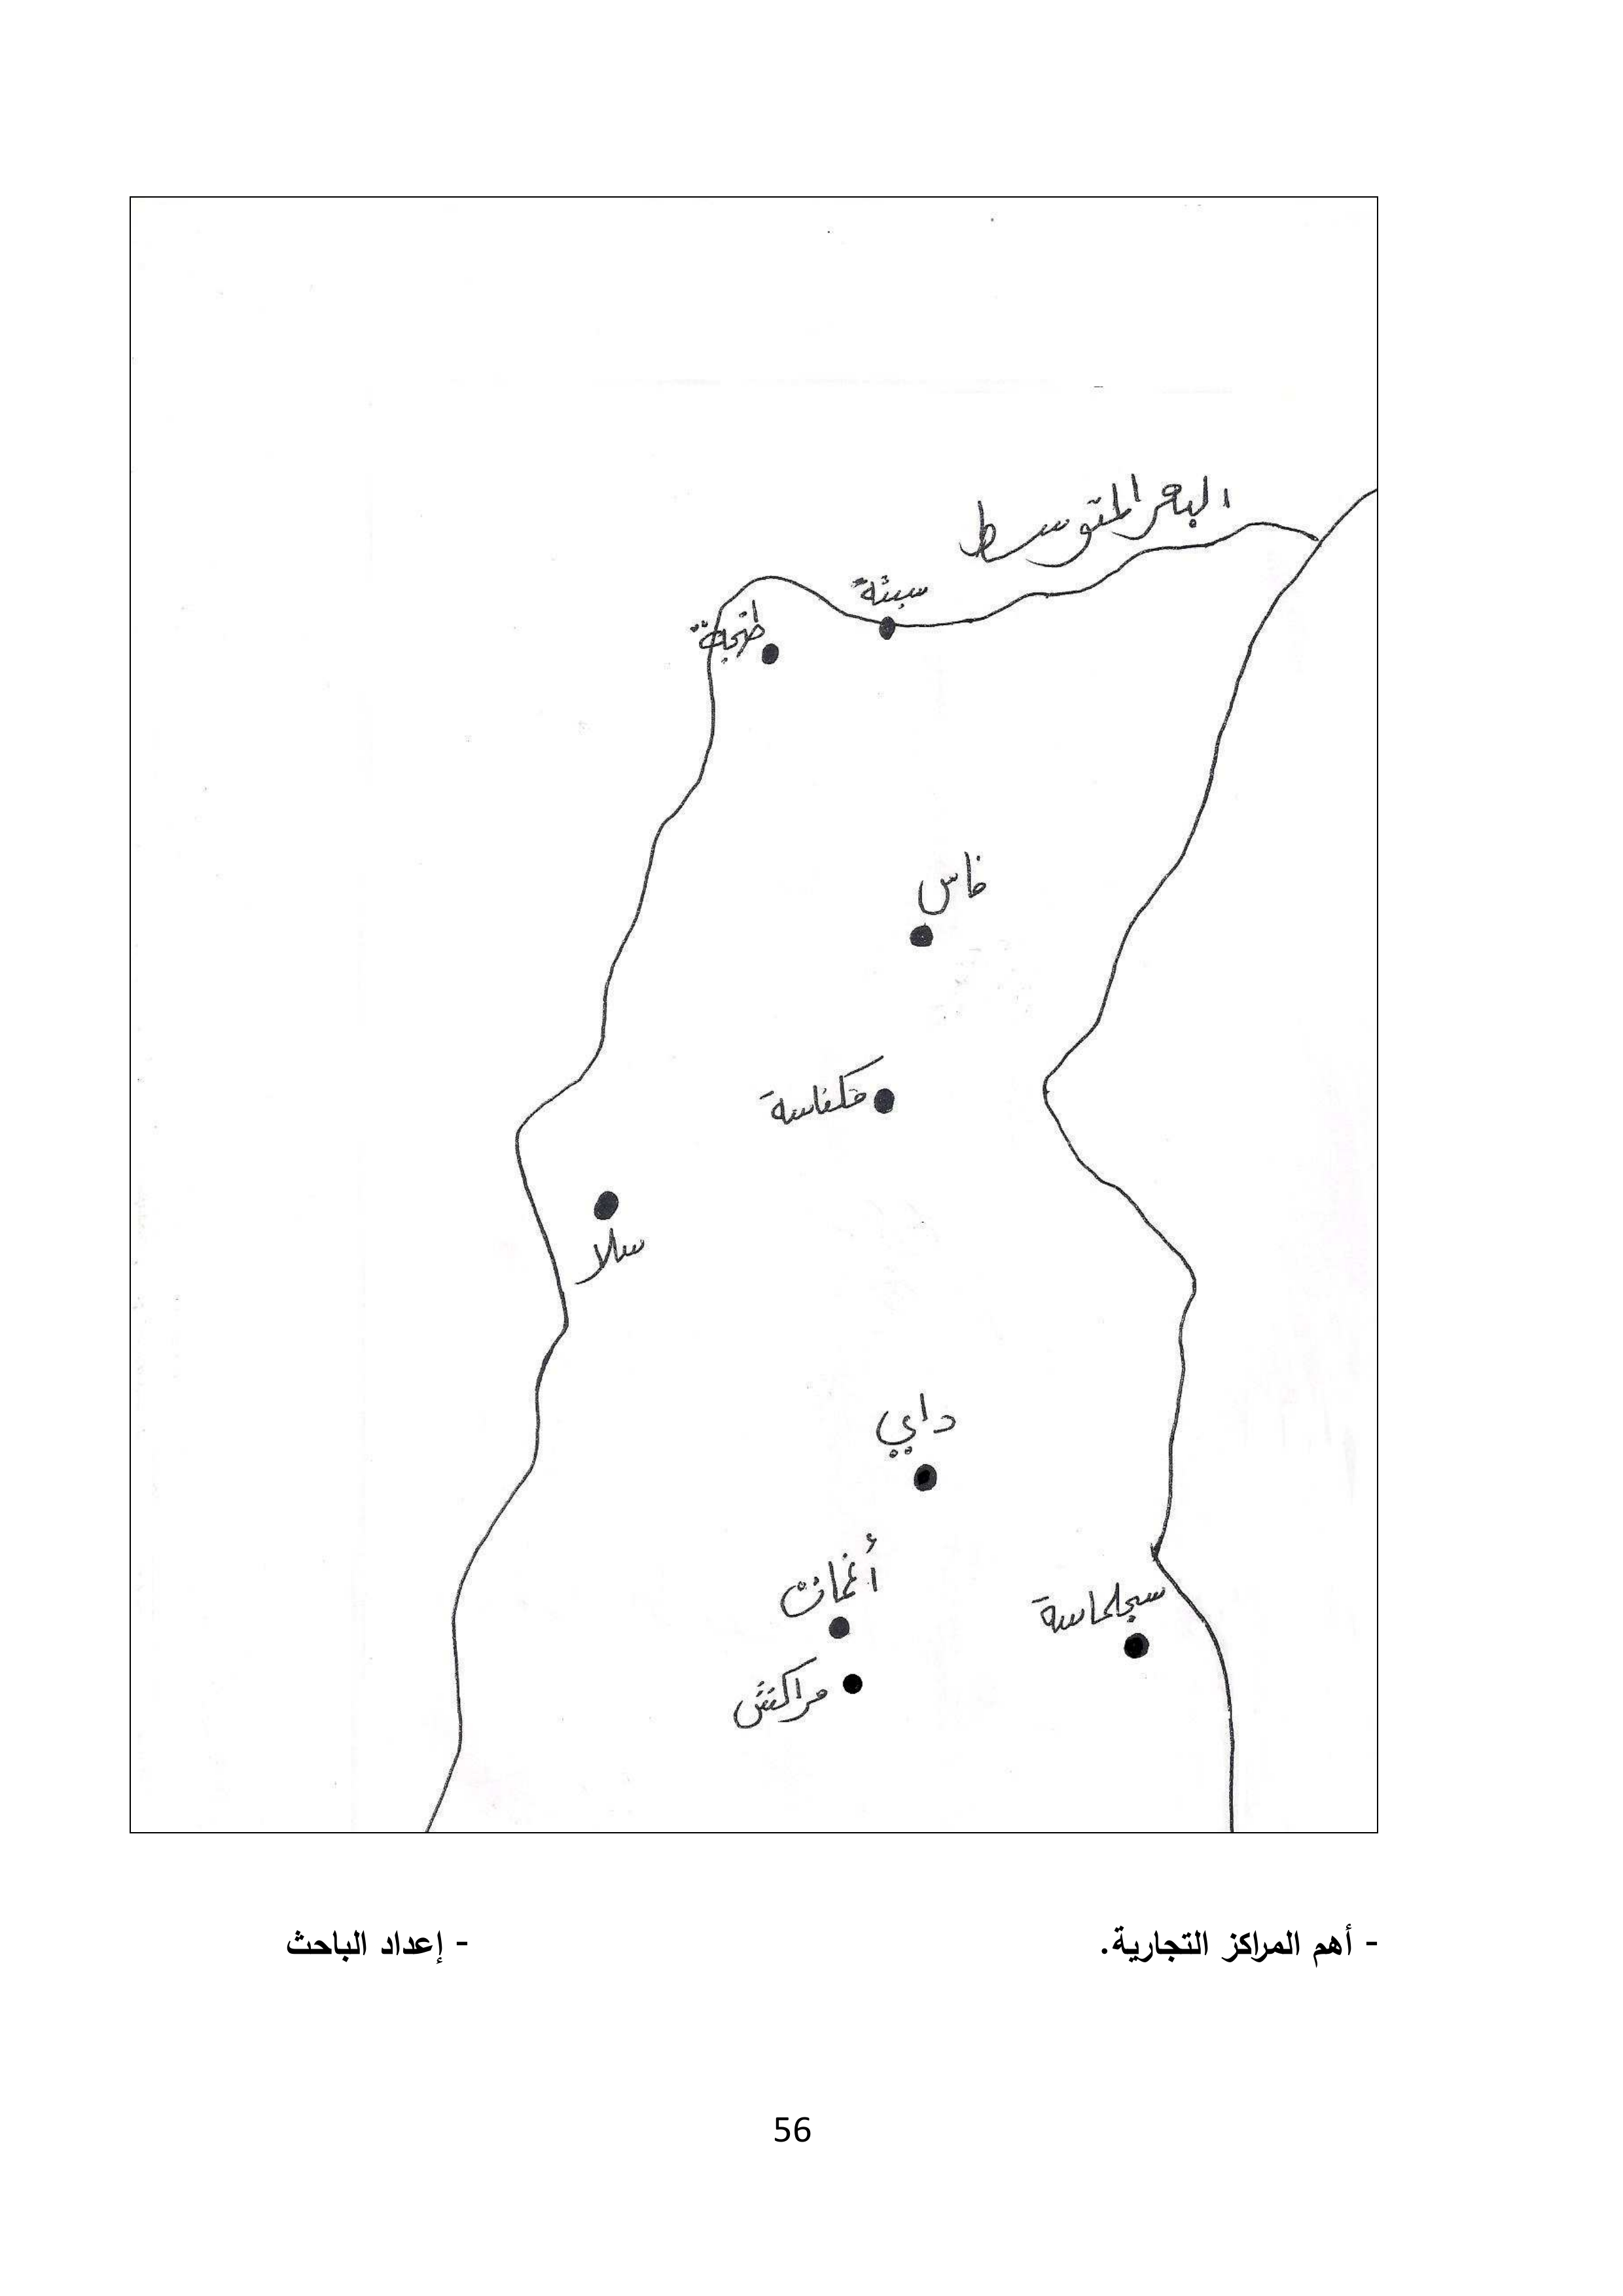 البحر المتوسط
سبتة
طنجة
فاس
مكناسة
سلا
داي
أغمات
سجلماسة
مراكش
- أهم المراكز التجارية.
- إعداد الباحث
56